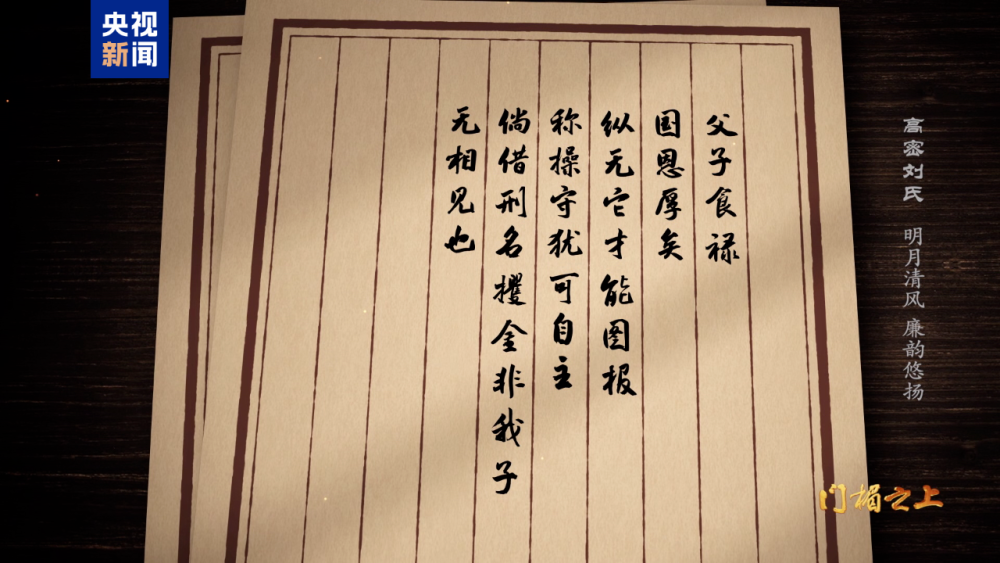 央视
新闻
父子食禄
国恩厚矣
纵无它才能图报
称操守犹可自主
倘借刑名攫金非我子
无相见也
高密刘氏 明月清风 廉韵悠扬
门楣之上